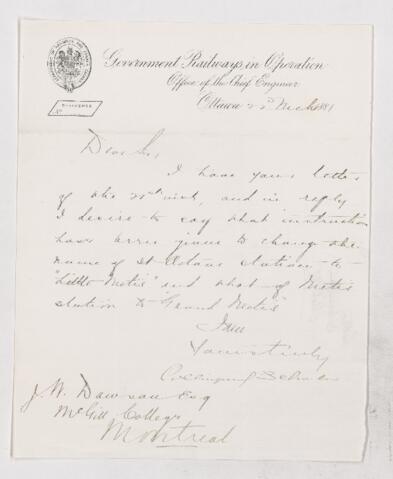 Government Railways in Operation
Office of the Chief Engineer
Ottawa 23rd March 1881
Dear Sir,
I have your letter
of the 21st inst, and in reply
I desire to say that instructions
have been given to change the
name of St Octave station to
"Little Metis" and that of Metis
station to "Grand Metis"
I am
Yours truly
Collingwood Schreiber
J. W. Dawson Esq
McGill College
Montreal